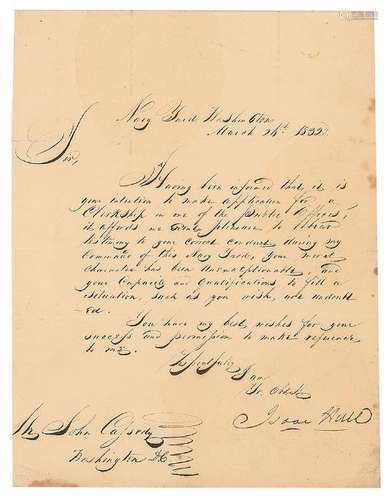 Navy Yard Washington
March 26th 1832
Sir,
Having been informed that it is
your intention to make application for a
Clerkship in one of the Public Offices;
it affords me great pleasure to bear
testimony to your correct conduct during my
Command of this Navy Yard, your moral
character has been Unexceptionable, and
your Capacity and Qualifications to fill a
situation, such as you wish, are undoubt-
ed.
You have my best wishes for your
success and permission to make reference
to me.
Respectfully
I am
Yr. Obt
Isaac Hull
Mr. John Cassedy
Washington DC